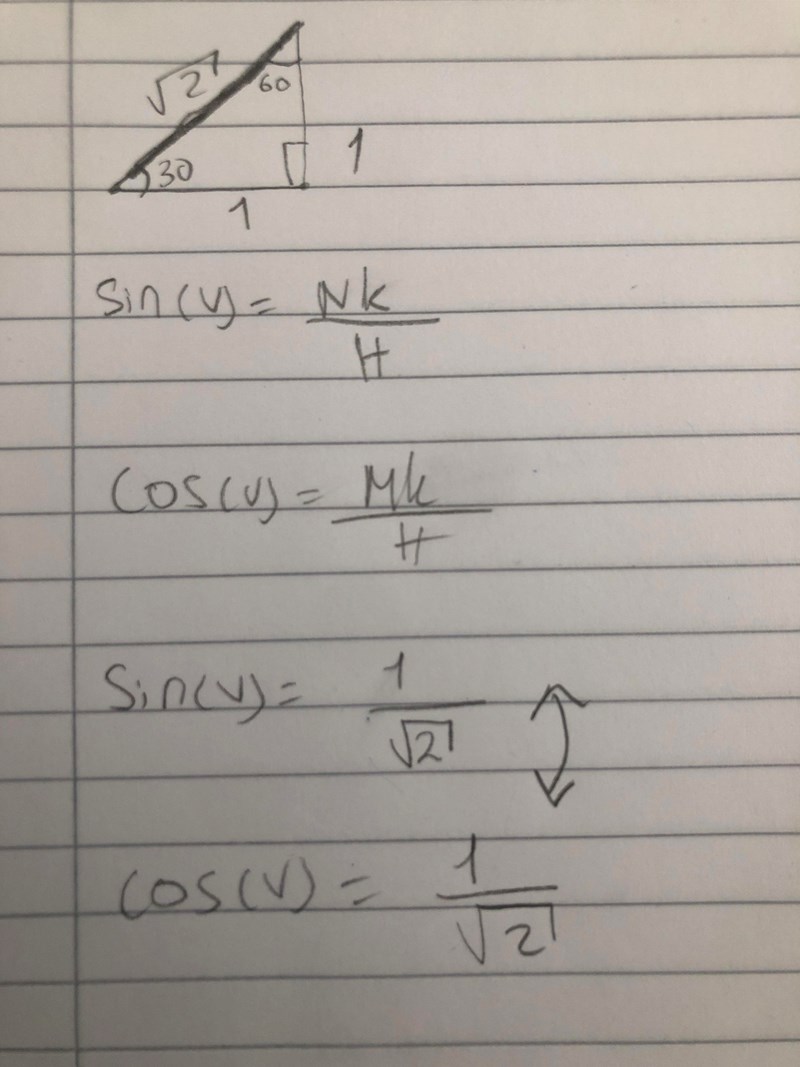 √2
60
30
1
1
Sin(v) = Nk
H
Cos(v) = Mk
H
Sin(v) = 1
√2
Cos(v) = 1
√2